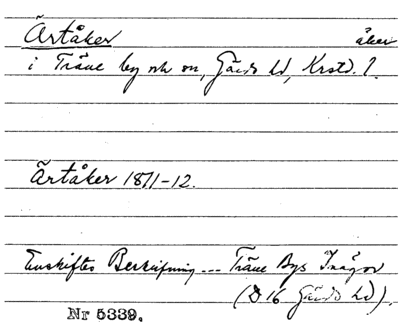 Ärtåker åker
i Träne by och sn, Gärds hd, Krstd. l.
Ärtåker 1811-12.
Enskiftes Beskrifning --- Träne Bys Inägor
(D 16 Gärds hd).
Nr 5339.